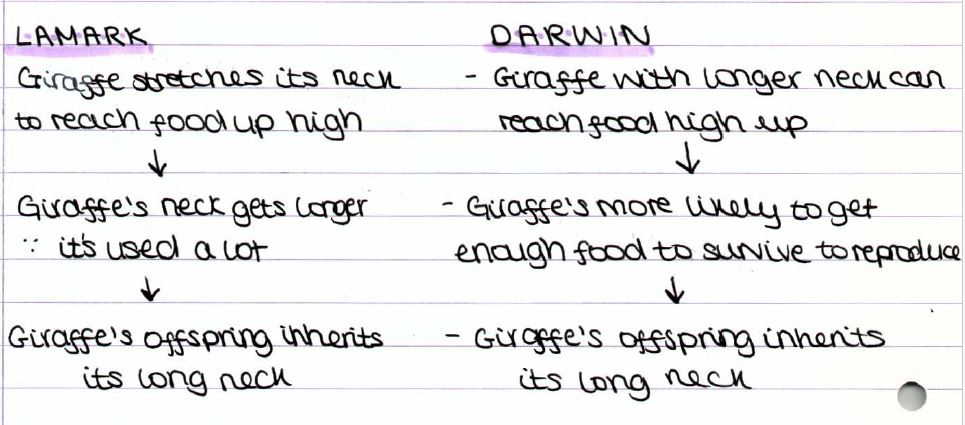 LAMARK
Giraffe stretches its neck
to reach food up high
↓
Giraffe's neck gets longer
∵ it's used a lot
↓
Giraffe's offspring inherits
its long neck
DARWIN
- Giraffe with longer neck can
reach food high up
↓
- Giraffe's more likely to get
enough food to survive to reproduce
↓
- Giraffe's offspring inherits
its long neck